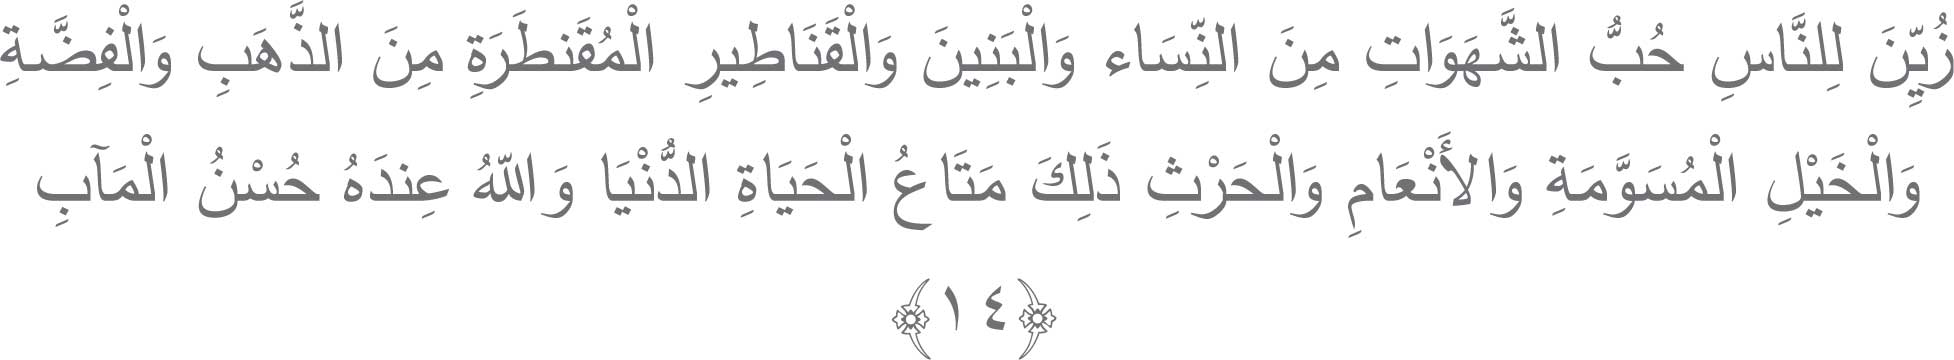 زُيِّنَ لِلنَّاسِ حُبُّ الشَّهَوَاتِ مِنَ النِّسَاء وَالْبَنِينَ وَالْقَنَاطِيرِ الْمُقَنطَرَةِ مِنَ الذَّهَبِ وَالْفِضَّةِ
وَالْخَيْلِ الْمُسَوَّمَةِ وَالأَنْعَامِ وَالْحَرْثِ ذَلِكَ مَتَاعُ الْحَيَاةِ الدُّنْيَا وَاللّهُ عِندَهُ حُسْنُ الْمَآبِ
﴿١٤﴾